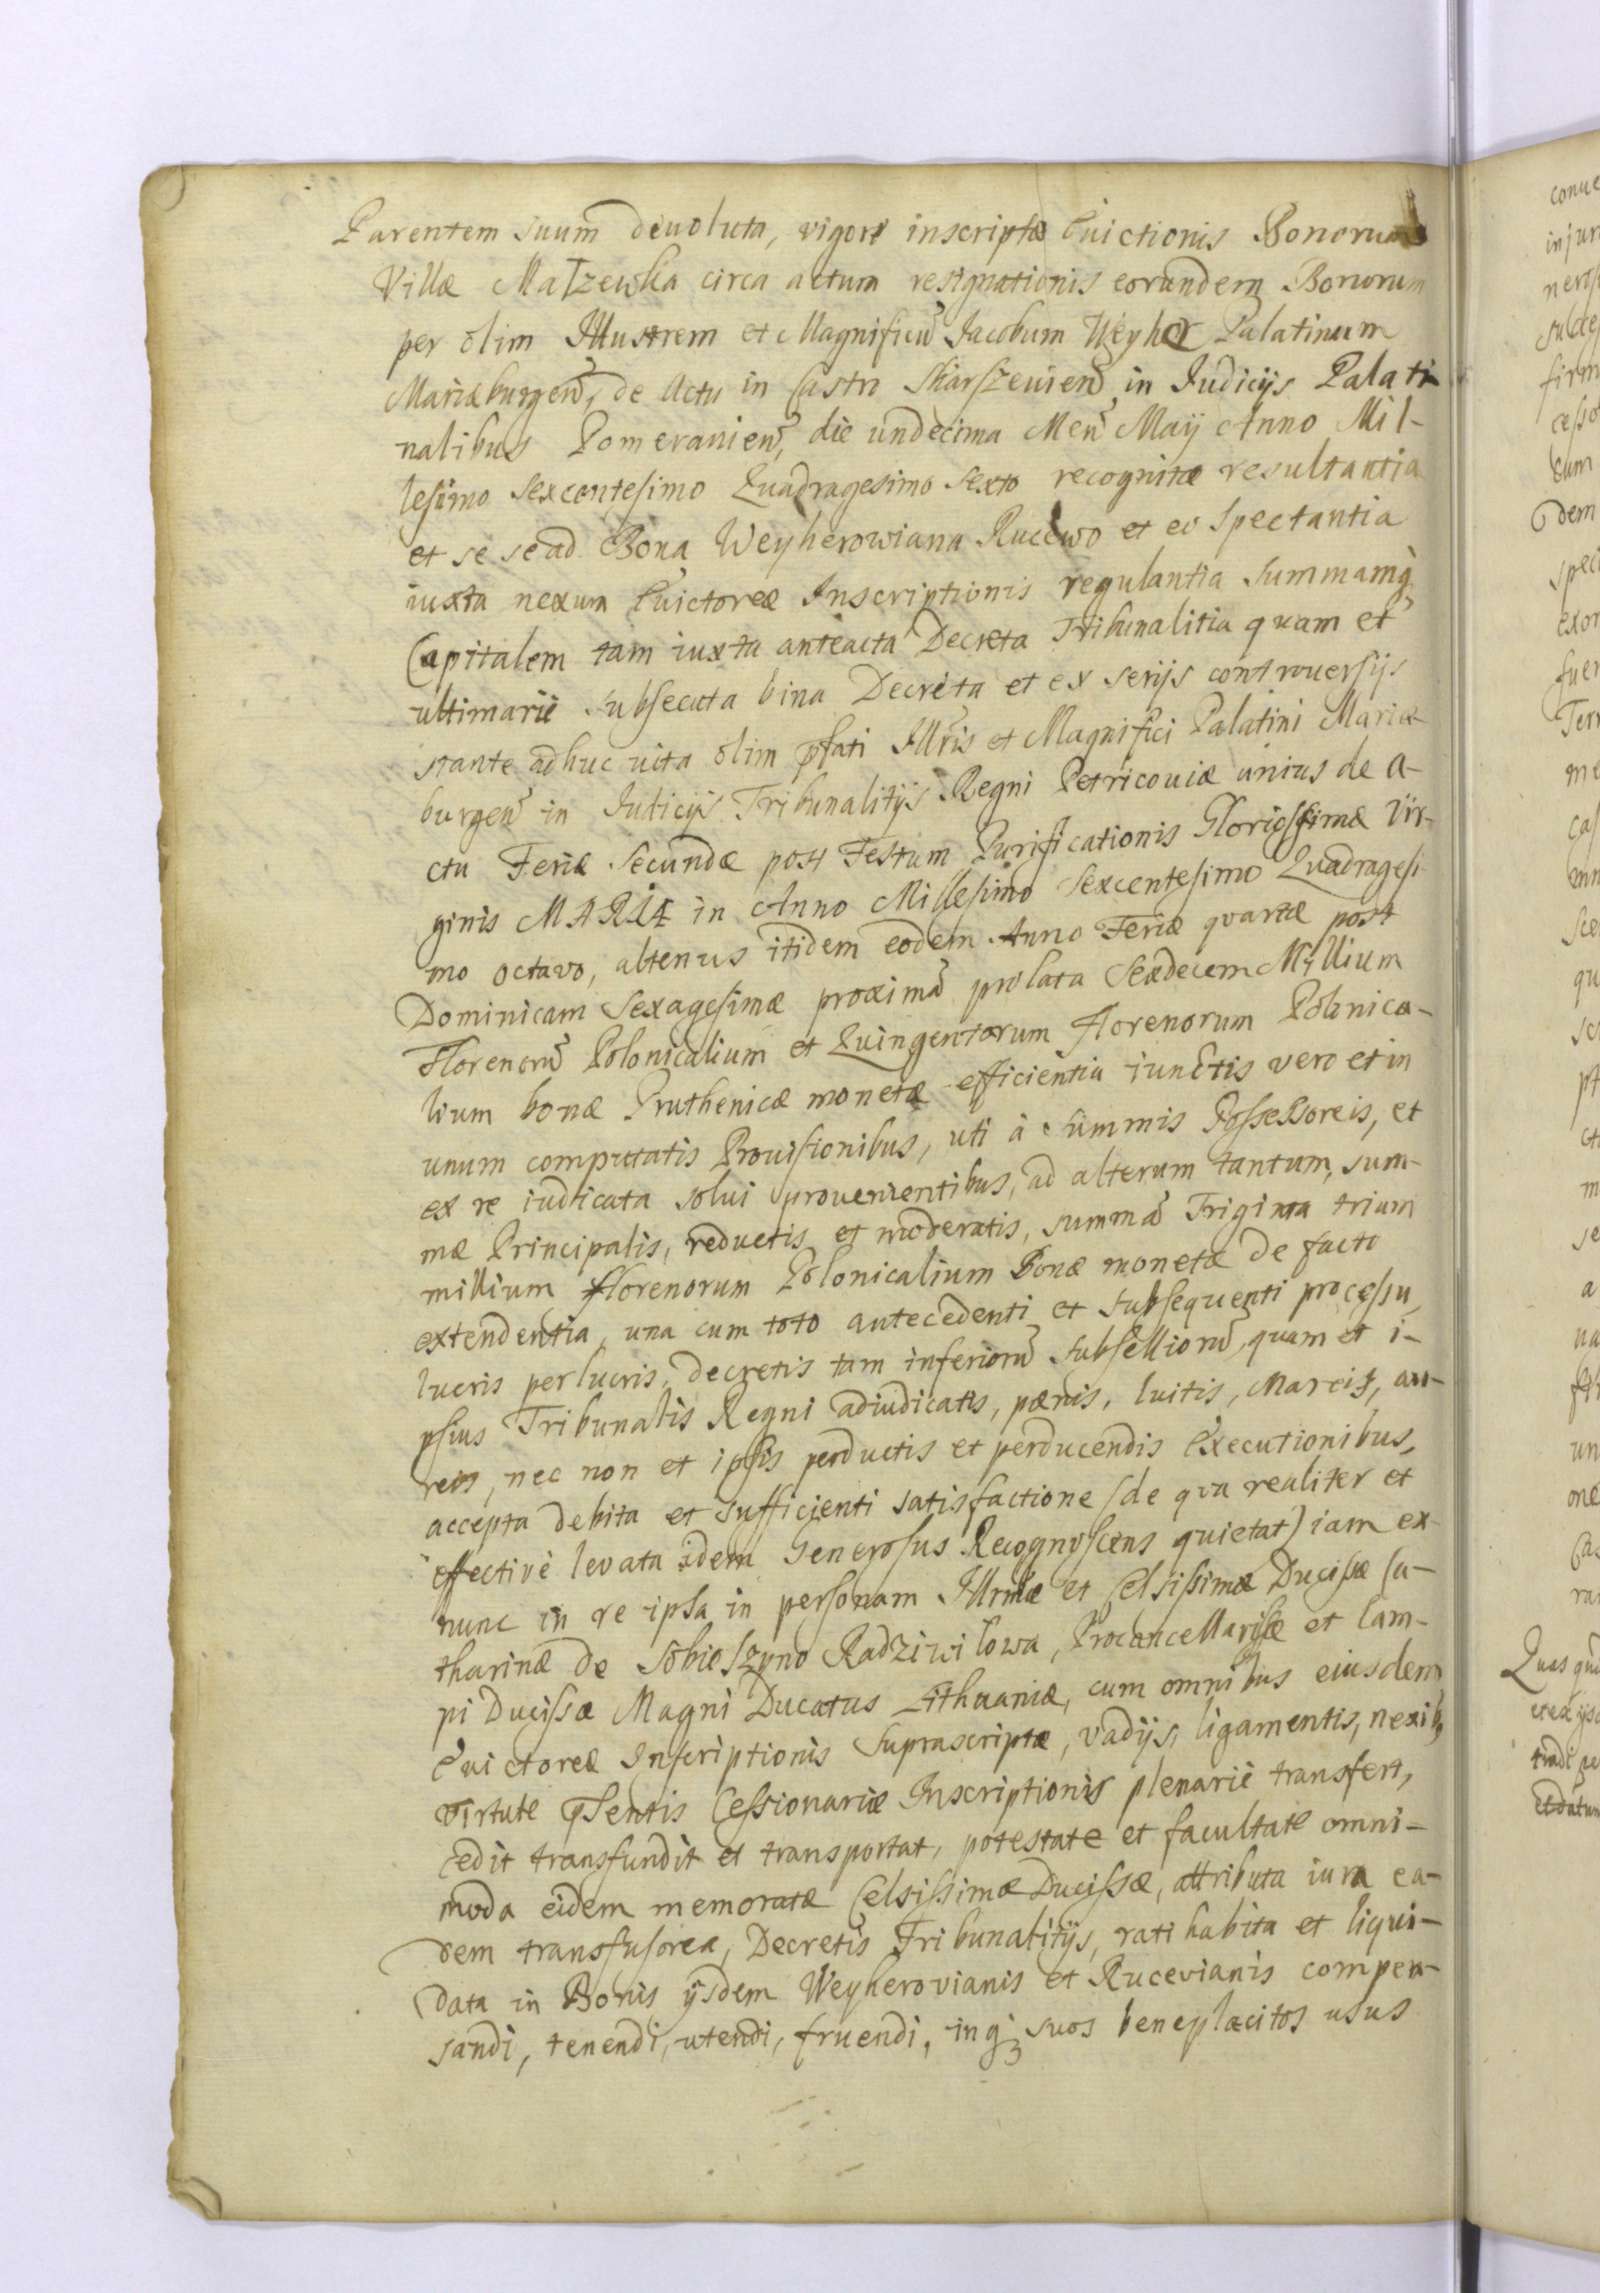 Parentem suum devoluta, vigore inscriptæ Euictionis Bonorum
Villæ Malzewska circa actum resignationis eorundem Bonorum
per olim Illustrem et Magnificū Jacobum Weyher Palatinum
Mariæburgeñ, de Actu in Castro Skarszevieñ in Iudicijs Palati
nalibus Pomeranieñ, die undecima Meñ Maij Anno Mil-
lesimo Sexcentesimo Quadragesimo Sexto recognitæ resultantia
et se se ad Bona Weyherowiana Rucewo et eo Spectantia
iuxta nexum Euictoreæ Inscriptionis regulantia Summamq̀
Capitalem tam iuxta anteacta Decreta Tribunalitia quam et
ultimariè subsecuta bina Decreta et ex serijs controversijs
stante adhuc vita olim pfati Illris et Magnifici Palatini Mariæ
burgeñ in Iudicijs Tribunalitijs Regni Petricoviæ unius de A-
ctu Feriæ Secundæ post Festum Purificationis Gloriosissimæ Vir-
ginis MARIÆ in Anno Millesimo Sexcentesimo Quadragesi
mo octavo, alterius itidem eodem Anno Feriæ quartæ post
Dominicam Sexagesimæ proximã prolata Sexdecem Millium
Florenorũ Polonicalium et Quingentorum Florenorum Polonica-
lium bonæ Pruthenicæ monetæ efficientia iunctis vero et in
unum computatis Provisionibus, uti à Summis Possessoreis, et
ex re iudicata solvi provenientibus, ad alterum tantum, sum-
mæ Principalis, reductis et moderatis, summã Triginta trium
millium florenorum Polonicalium Bonæ monetæ de facto
extendentia, una cum toto antecedenti et subsequenti processu,
lucris perlucris, decretis tam inferiorũ Subselliorũ, quam et i-
psius Tribunalis Regni adiudicatis, pænis, luitis, Marcis, au-
reis, nec non et ipsis perductis et perducendis Executionibus,
accepta debita et sufficienti satisfactione (de qua realiter et
effectivè levata idem Generosus Recognoscens quietat) iam ex
nunc in re ipsa in personam Illrmæ et Celsissimæ Ducissæ Ca-
tharinæ de Sobieszyno Radziwilowa, Procancellarissæ et Cam-
pi Ducissæ Magni Ducatus Lithuaniæ, cum omnibus eiusdem
Euictoreæ Inscriptionis suprascriptæ, vadijs, ligamentis, nexib,
virtute pŝentis Cessionariæ Inscriptionis plenariè transfert,
cedit transfundit et transportat, potestate et facultate omni-
moda eidem memoratæ Celsissimæ Ducissæ, attributa iura ea-
dem transfusorea, Decretis Tribunalitijs, ratihabita et liqui-
data in Bonis ijsdem Weyherovianis et Rucevianis compen-
sandi, tenendi, utendi, fruendi, inq; suos beneplacitos usus